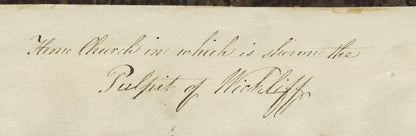 Home Church in which is shown the
Pulpit of Wickliff